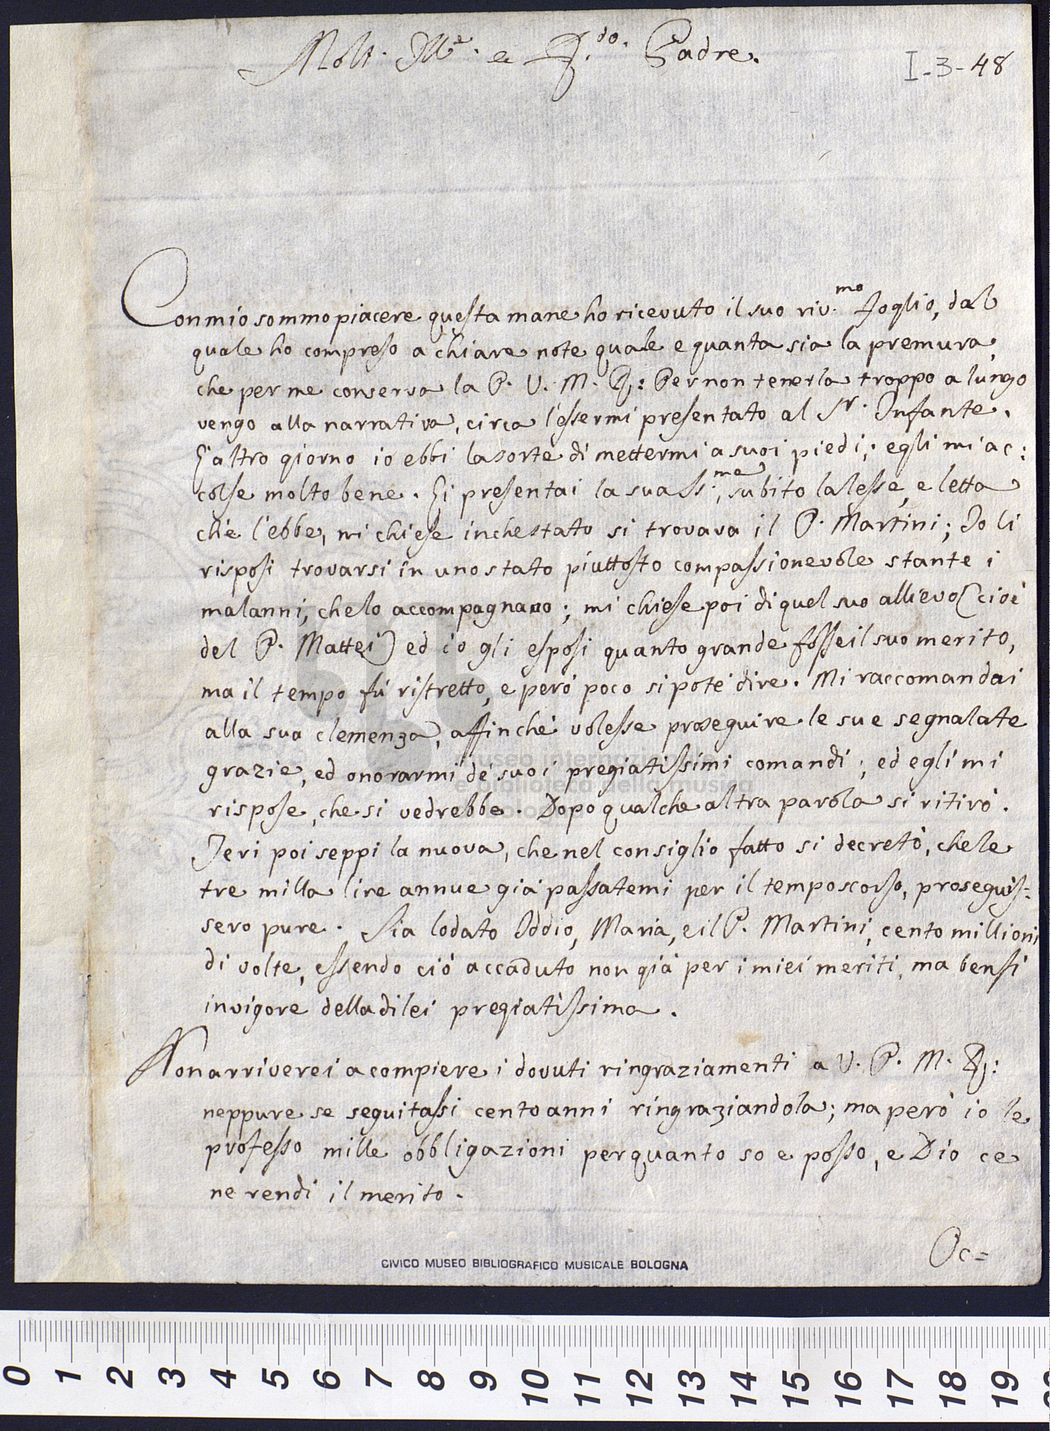 Molt. Ill.e e R.do Padre.
I-3-48
Con mio sommo piacere questa mane ho ricevuto il suo riv.mo foglio, dal
quale ho compreso a chiare note quale e quanta sia la premura,
che per me conserva la P. V. M. R: Per non tenerla troppo a lungo
vengo alla narrativa, circa l'essermi presentato al Sr. Infante.
L'altro giorno io ebbi la sorte di mettermi a suoi piedi; egli mi ac:
colse molto bene. Li presentai la sua ss.ma, subito la lesse, e letta
che l'ebbe, mi chiese in che stato si trovava il P. Martini; Io li
risposi trovarsi in uno stato piuttosto compassionevole stante i
malanni, che lo accompagnano; mi chiese poi di quel suo allievo (cioè
del P. Mattei) ed io gli esposi quanto grande fosse il suo merito,
ma il tempo fù ristretto, e però poco si potè dire. Mi raccomandai
alla sua clemenza, affinchè volesse proseguire le sue segnalate
grazie, ed onorarmi de' suoi pregiatissimi comandi; ed egli mi
rispose, che si vedrebbe. Dopo qualche altra parola si ritirò.
Jeri poi seppi la nuova, che nel consiglio fatto si decretò, che le
tre milla lire annue già passatemi per il tempo scorso, proseguis=
sero pure. Sia lodato Iddio, Maria, e il P. Martini, cento millioni
di volte, essendo ciò accaduto non già per i miei meriti, ma bensì
in vigore della di lei pregiatissima.
Non arriverei a compiere i dovuti ringraziamenti a V. P. M. R:
neppure se seguitassi cento anni ringraziandola; ma però io le
professo mille obbligazioni per quanto so e posso, e Dio ce
ne rendi il merito.
Oc=
museo internazionale
e biblioteca della musica
bologna
CIVICO MUSEO BIBLIOGRAFICO MUSICALE BOLOGNA
0 1 2 3 4 5 6 7 8 9 10 11 12 13 14 15 16 17 18 19